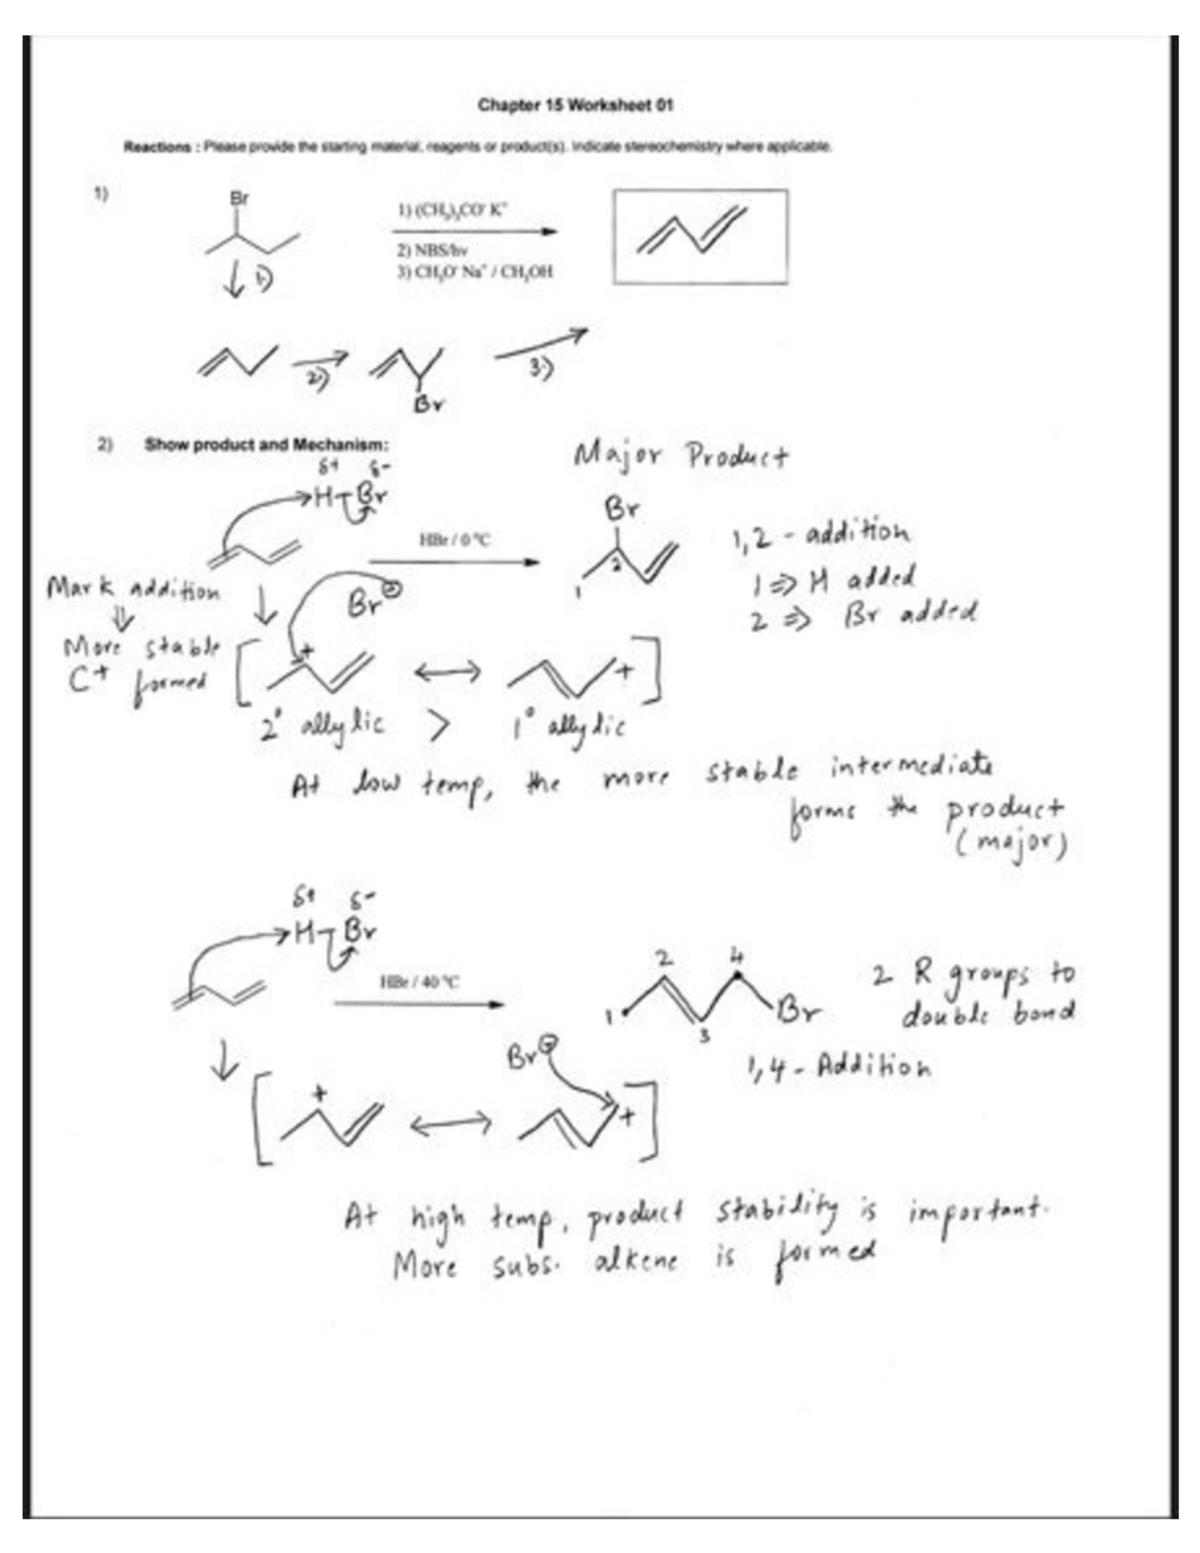 Chapter 15 Worksheet 01
Reactions : Please provide the starting material, reagents or product(s). Indicate stereochemistry where applicable.
1)
Br
1) (CH3)3CO- K+
2) NBS/hv
3) CH3O- Na+ / CH3OH
1)
2)
3)
Br
2) Show product and Mechanism:
Major Product
δ+ δ-
H-Br
Br
HBr / 0 °C
1,2 - addition
2
1
1 ⇒ H added
2 ⇒ Br added
Mark addition
⇓
Br⊖
More stable
C+ formed
[ + ↔ + ]
2° allylic > 1° allylic
At low temp, the more stable intermediate
forms the product
(major)
δ+ δ-
H-Br
HBr / 40 °C
2 4
1 3 Br
2 R groups to
double bond
1,4 - Addition
Br⊖
[ + ↔ + ]
At high temp, product stability is important.
More subs. alkene is formed